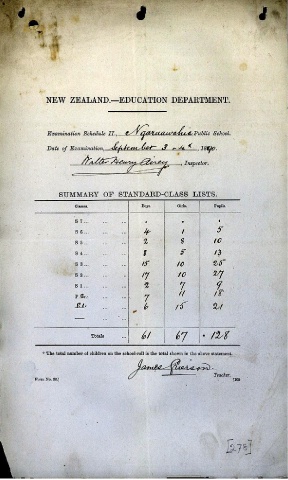 NEW ZEALAND.—EDUCATION DEPARTMENT.
Examination Schedule II., Ngaruawahia Public School.
Date of Examination, September 3 1890.
Walter Henry Airey, Inspector.
SUMMARY OF STANDARD-CLASS LISTS.
Classes. Boys. Girls. Pupils
S 7 . . .
S 6 4 1 5
S 5 2 8 10
S 4 8 5 13
S 3 15 10 25
S 2 17 10 27
S 1 2 7 9
P 7 11 18
6 15 21
Totals 61 67 128
* The total number of children on the school-roll is the total shown in the above statement.
James Pierson.
Teacher.
Form No.
[278]